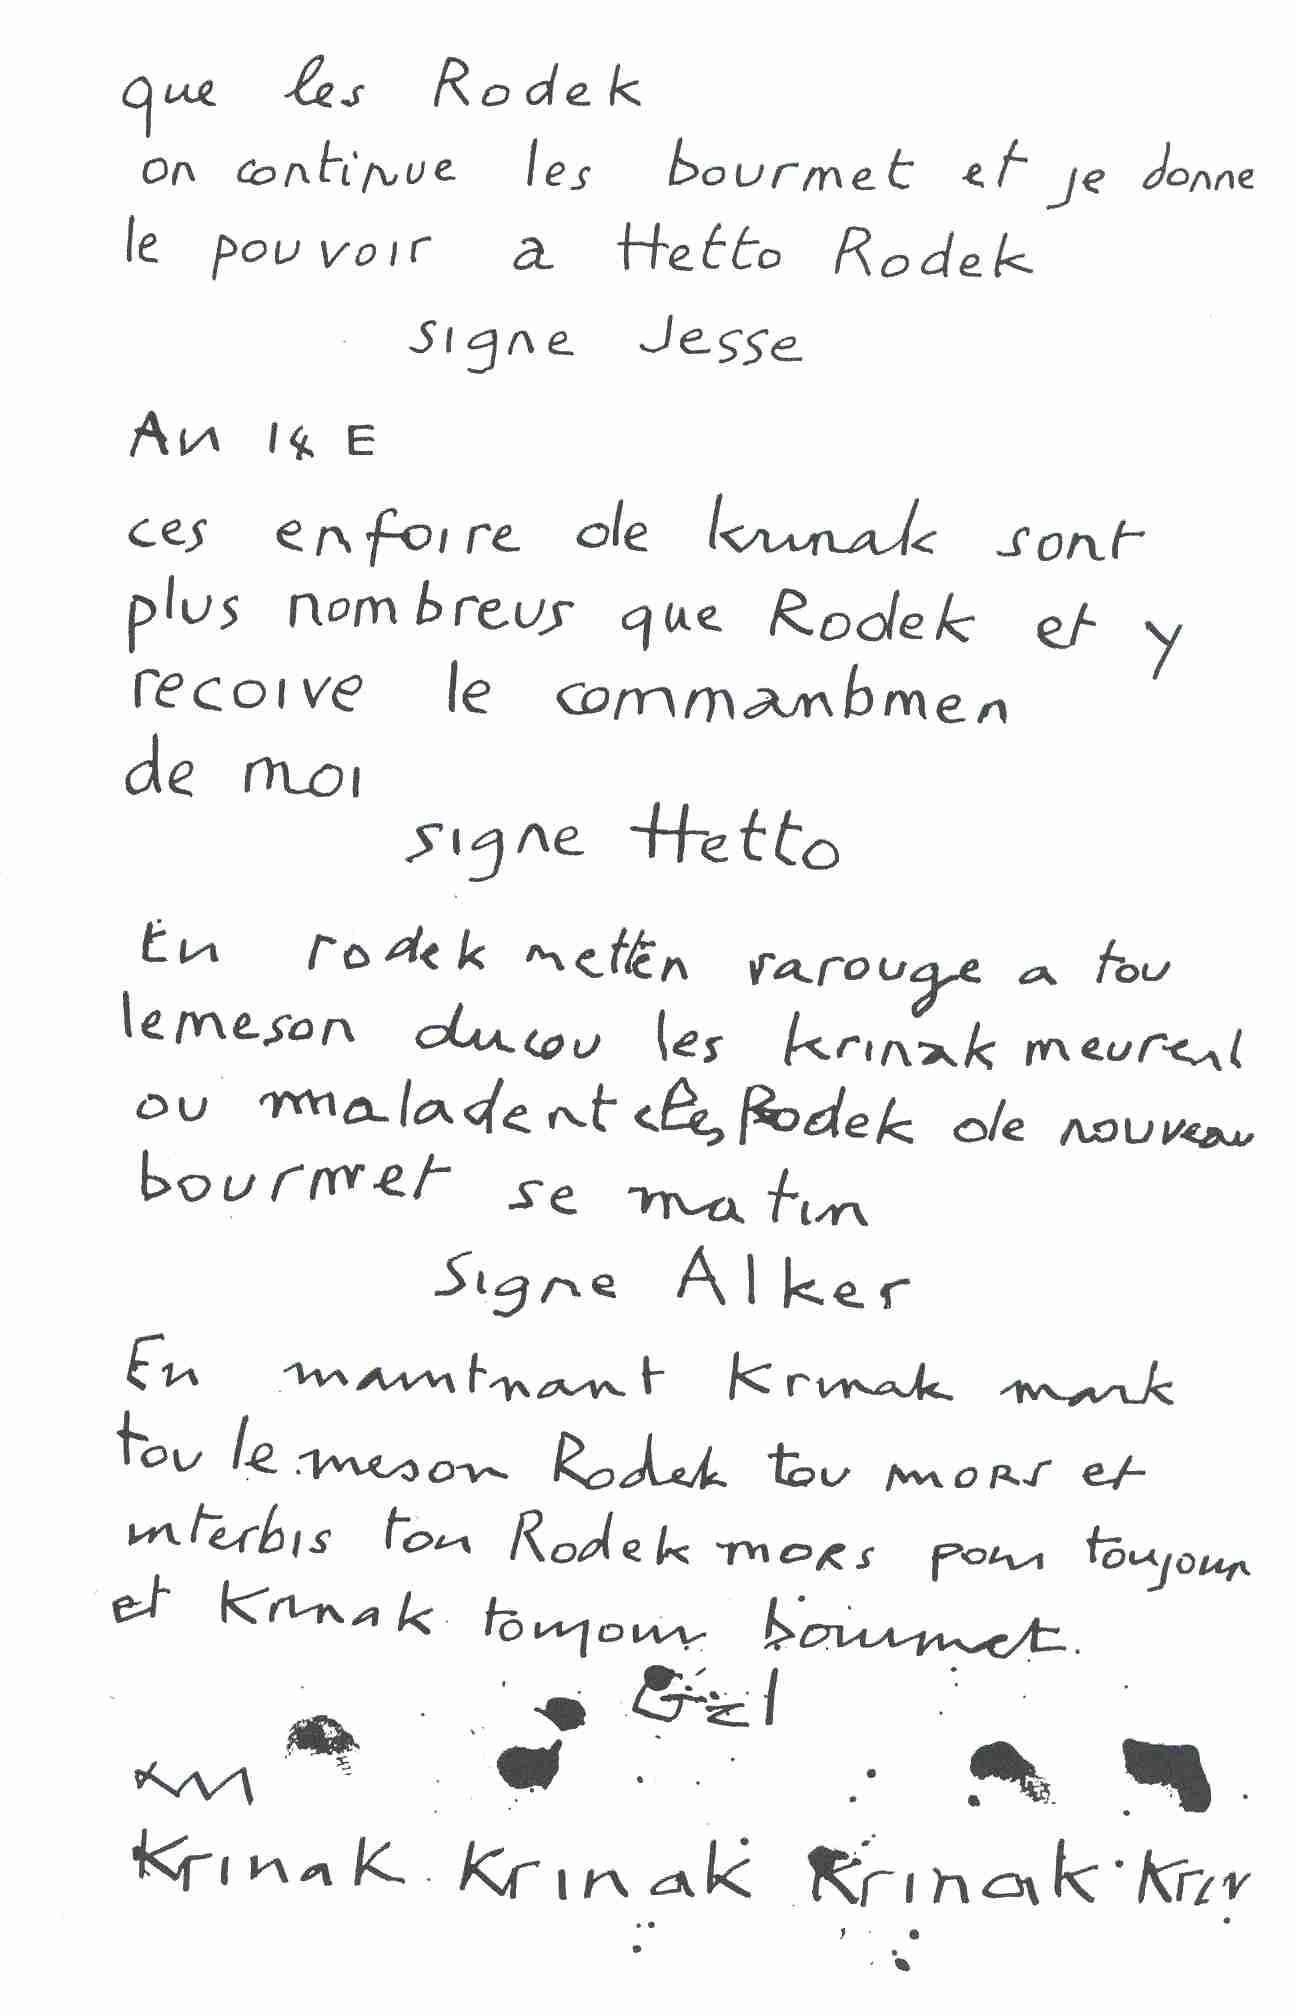 que les Rodek
on continue les bourmet et je donne
le pouvoir a Hetto Rodek
signe Jesse
An 14 E
ces enfoire de krinak sont
plus nombreus que Rodek et y
recoive le commanbmen
de moi
signe Hetto
En rodek metten varouge a tou
lemeson ducou les krinak meurent
ou maladent les Rodek de nouveau
bourmet se matin
Signe Alker
En maintnant Krinak mark
tou le meson Rodek tou mors et
interbis tou Rodek mors pour toujour
et Krinak toujour bourmet.
Gzl
Krinak Krinak Krinak Krin